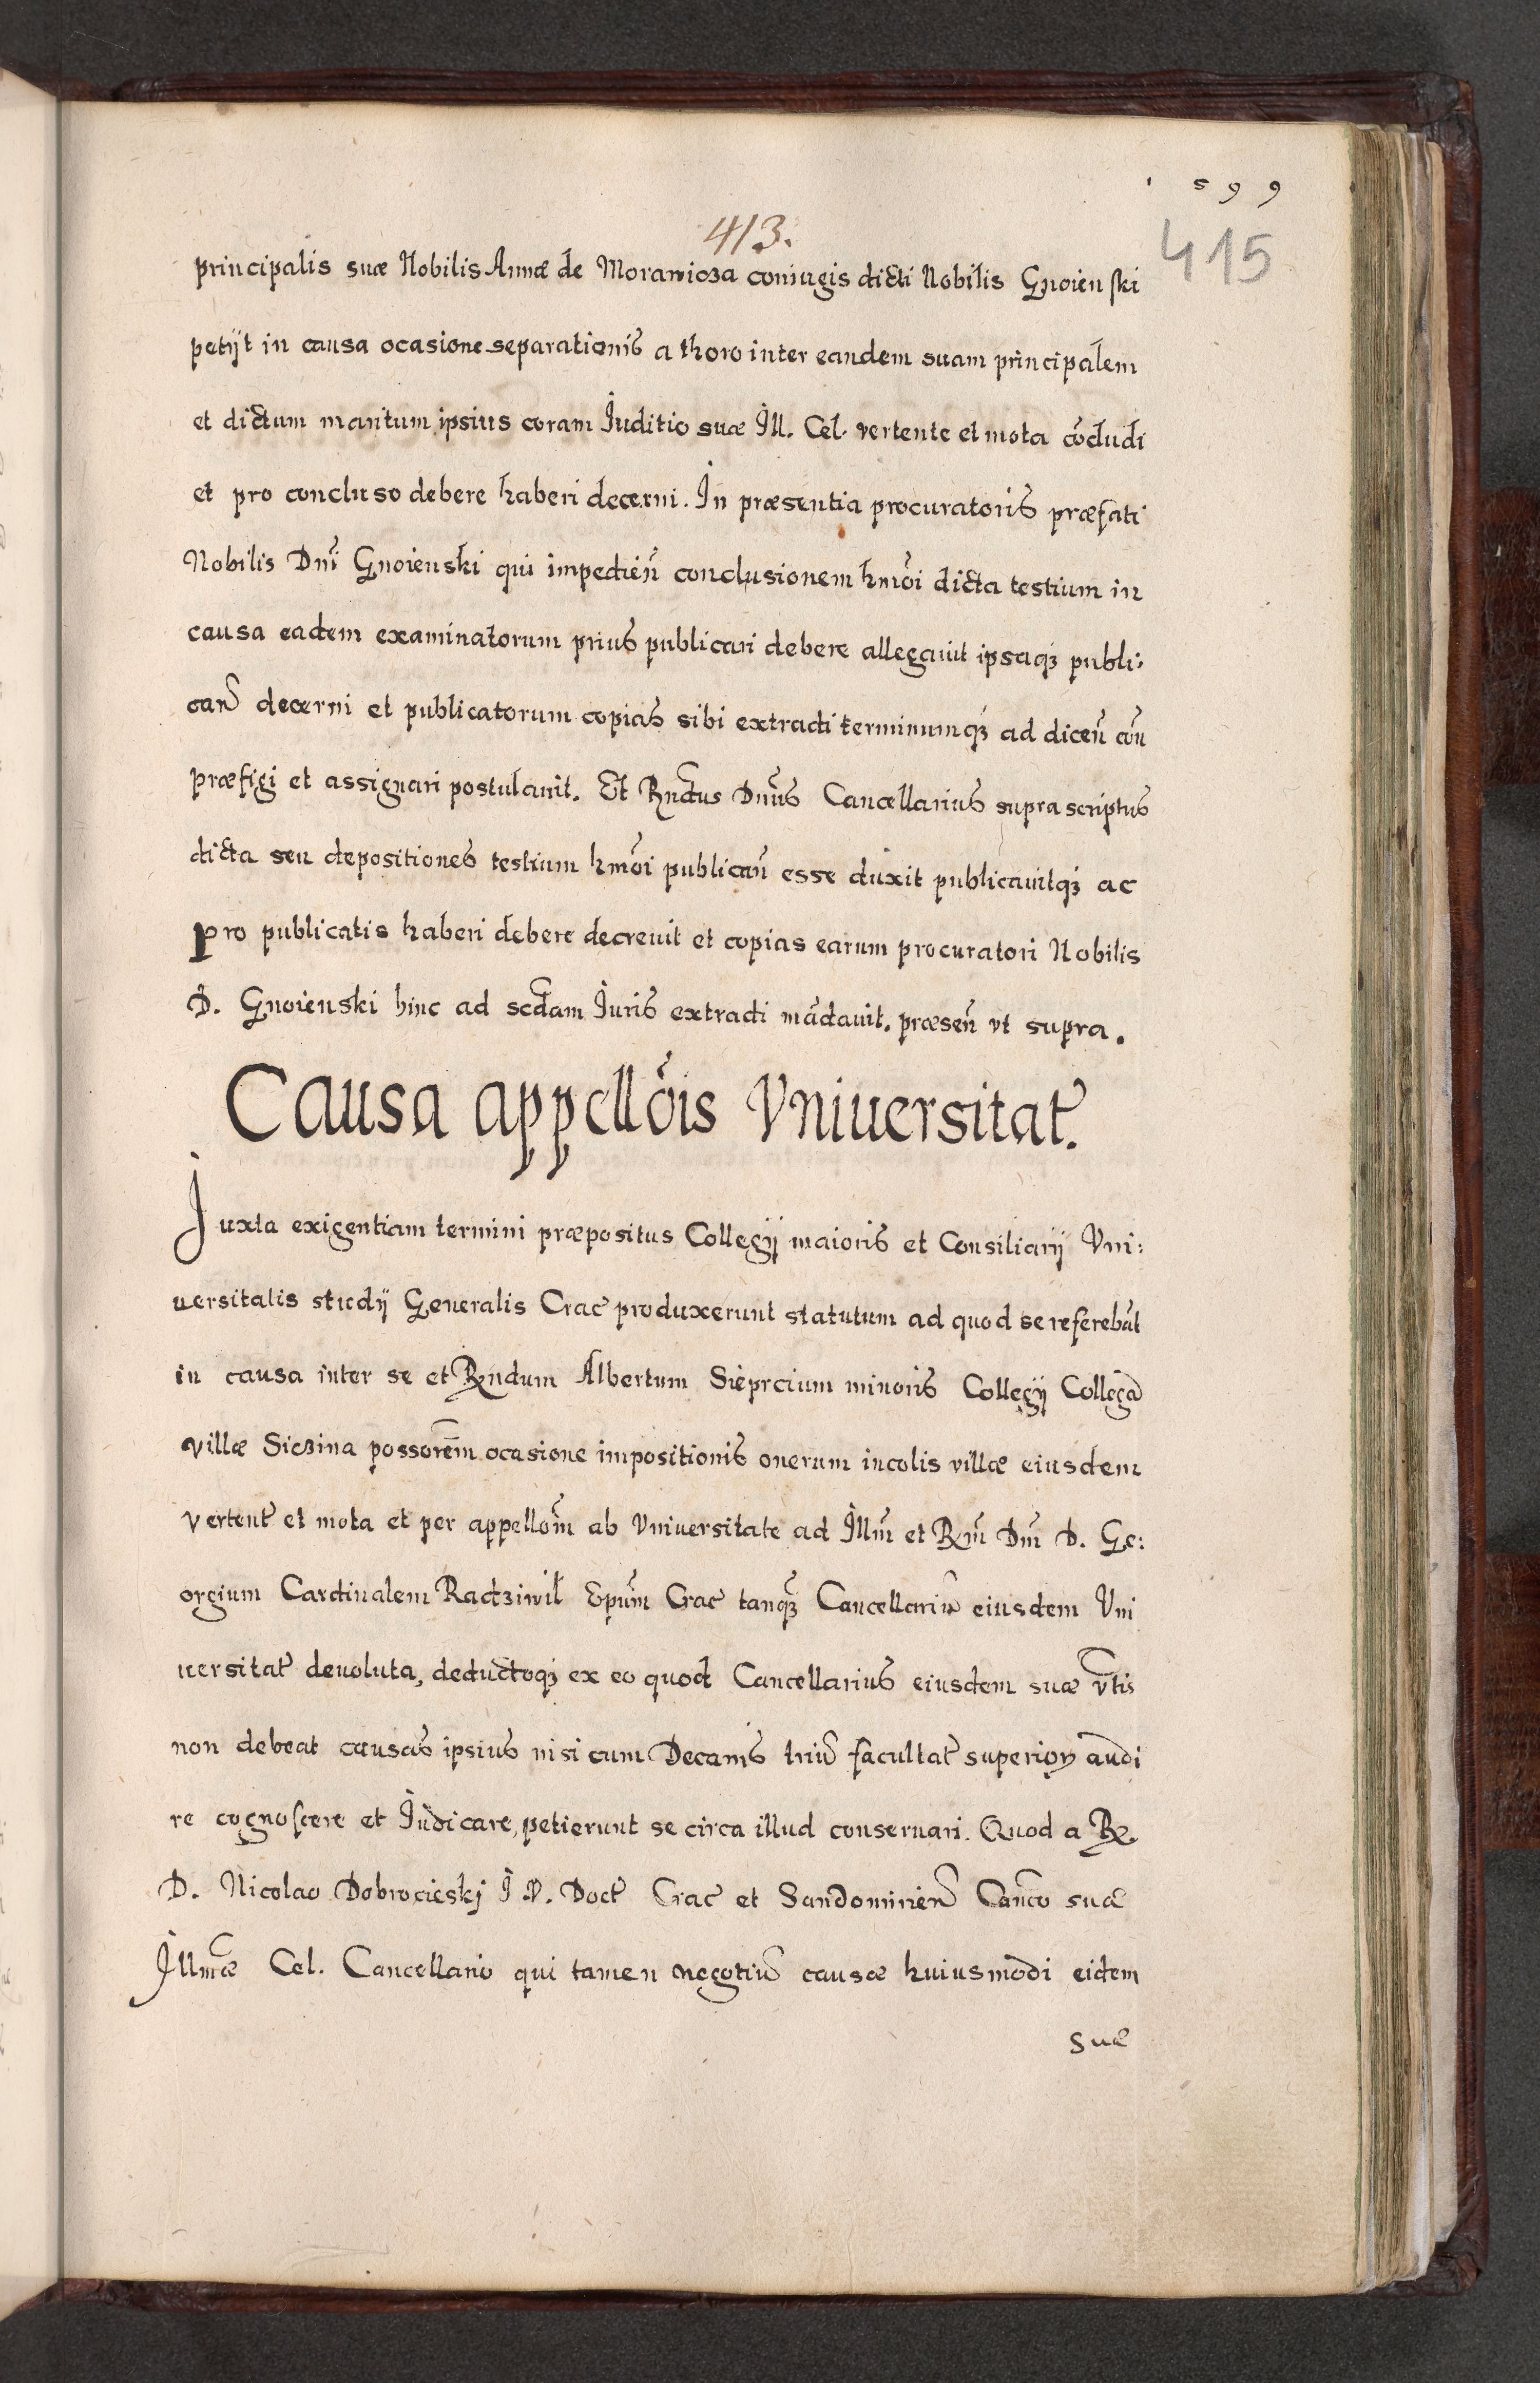 1599
413.
415
principalis suæ Nobilis Annæ de Morawicza coniugis dicti Nobilis Gnoienski
petijt in causa ocasione separationis a thoro inter eandem suam principalem
et dictum maritum ipsius coram Iuditio suæ Ill. Cel. vertente et mota cōcludi
et pro concluso debere haberi decerni. In præsentia procuratoris præfati
Nobilis Dnī Gnoienski qui impedien̄ conclusionem hmōi dicta testium in
causa eadem examinatorum prius publicari debere allegavit ipsaqȝ publi:
can̄ decerni et publicatorum copias sibi extradi terminumqȝ ad dicen̄ con̄
præfigi et assignari postulavit. Et Rndus Dnūs Cancellarius supra scriptus
dicta seu depositiones testium hmōi publican̄ esse duxit publicavitqȝ ac
pro publicatis haberi debere decrevit et copias earum procuratori Nobilis
D. Gnoienski hinc ad scdam Iuris extradi mādavit. præsen̄ vt supra.
Causa appellōis Vniuersitat̄.
Juxta exigentiam termini præpositus Collegij maioris et Consiliarij Vni:
uersitatis studij Generalis Crac̄ produxerunt statutum ad quod se referebāt
in causa inter se et Rndum Albertum Sieprcium minoris Collegij Collegā
villæ Siczina possorēm ocasione impositionis onerum incolis villæ eiusdem
vertent̄ et mota et per appellōm ab Vniuersitate ad Illm̄ et Rm̄ Dm̄ D. Ge:
orgium Cardinalem Radziwił Epūm Crac̄ tanqȝ Cancellariū eiusdem Vni
uersitat̄ deuoluta, deductoqȝ ex eo quod Cancellarius eiusdem suæ v̄tis
non debeat causas ipsius nisi cum Decanis triū facultat̄ superioꝝ audi
re cognoscere et Iudicare, petierunt se circa illud conseruari. Quod a R.
D. Nicolao Dobrocieskj I. V. Doct̄ Crac̄ et Sandomirien̄ Canco suæ
Illmæ Cel. Cancellario qui tamen negotiū causæ huiusmodi eidem
suæ